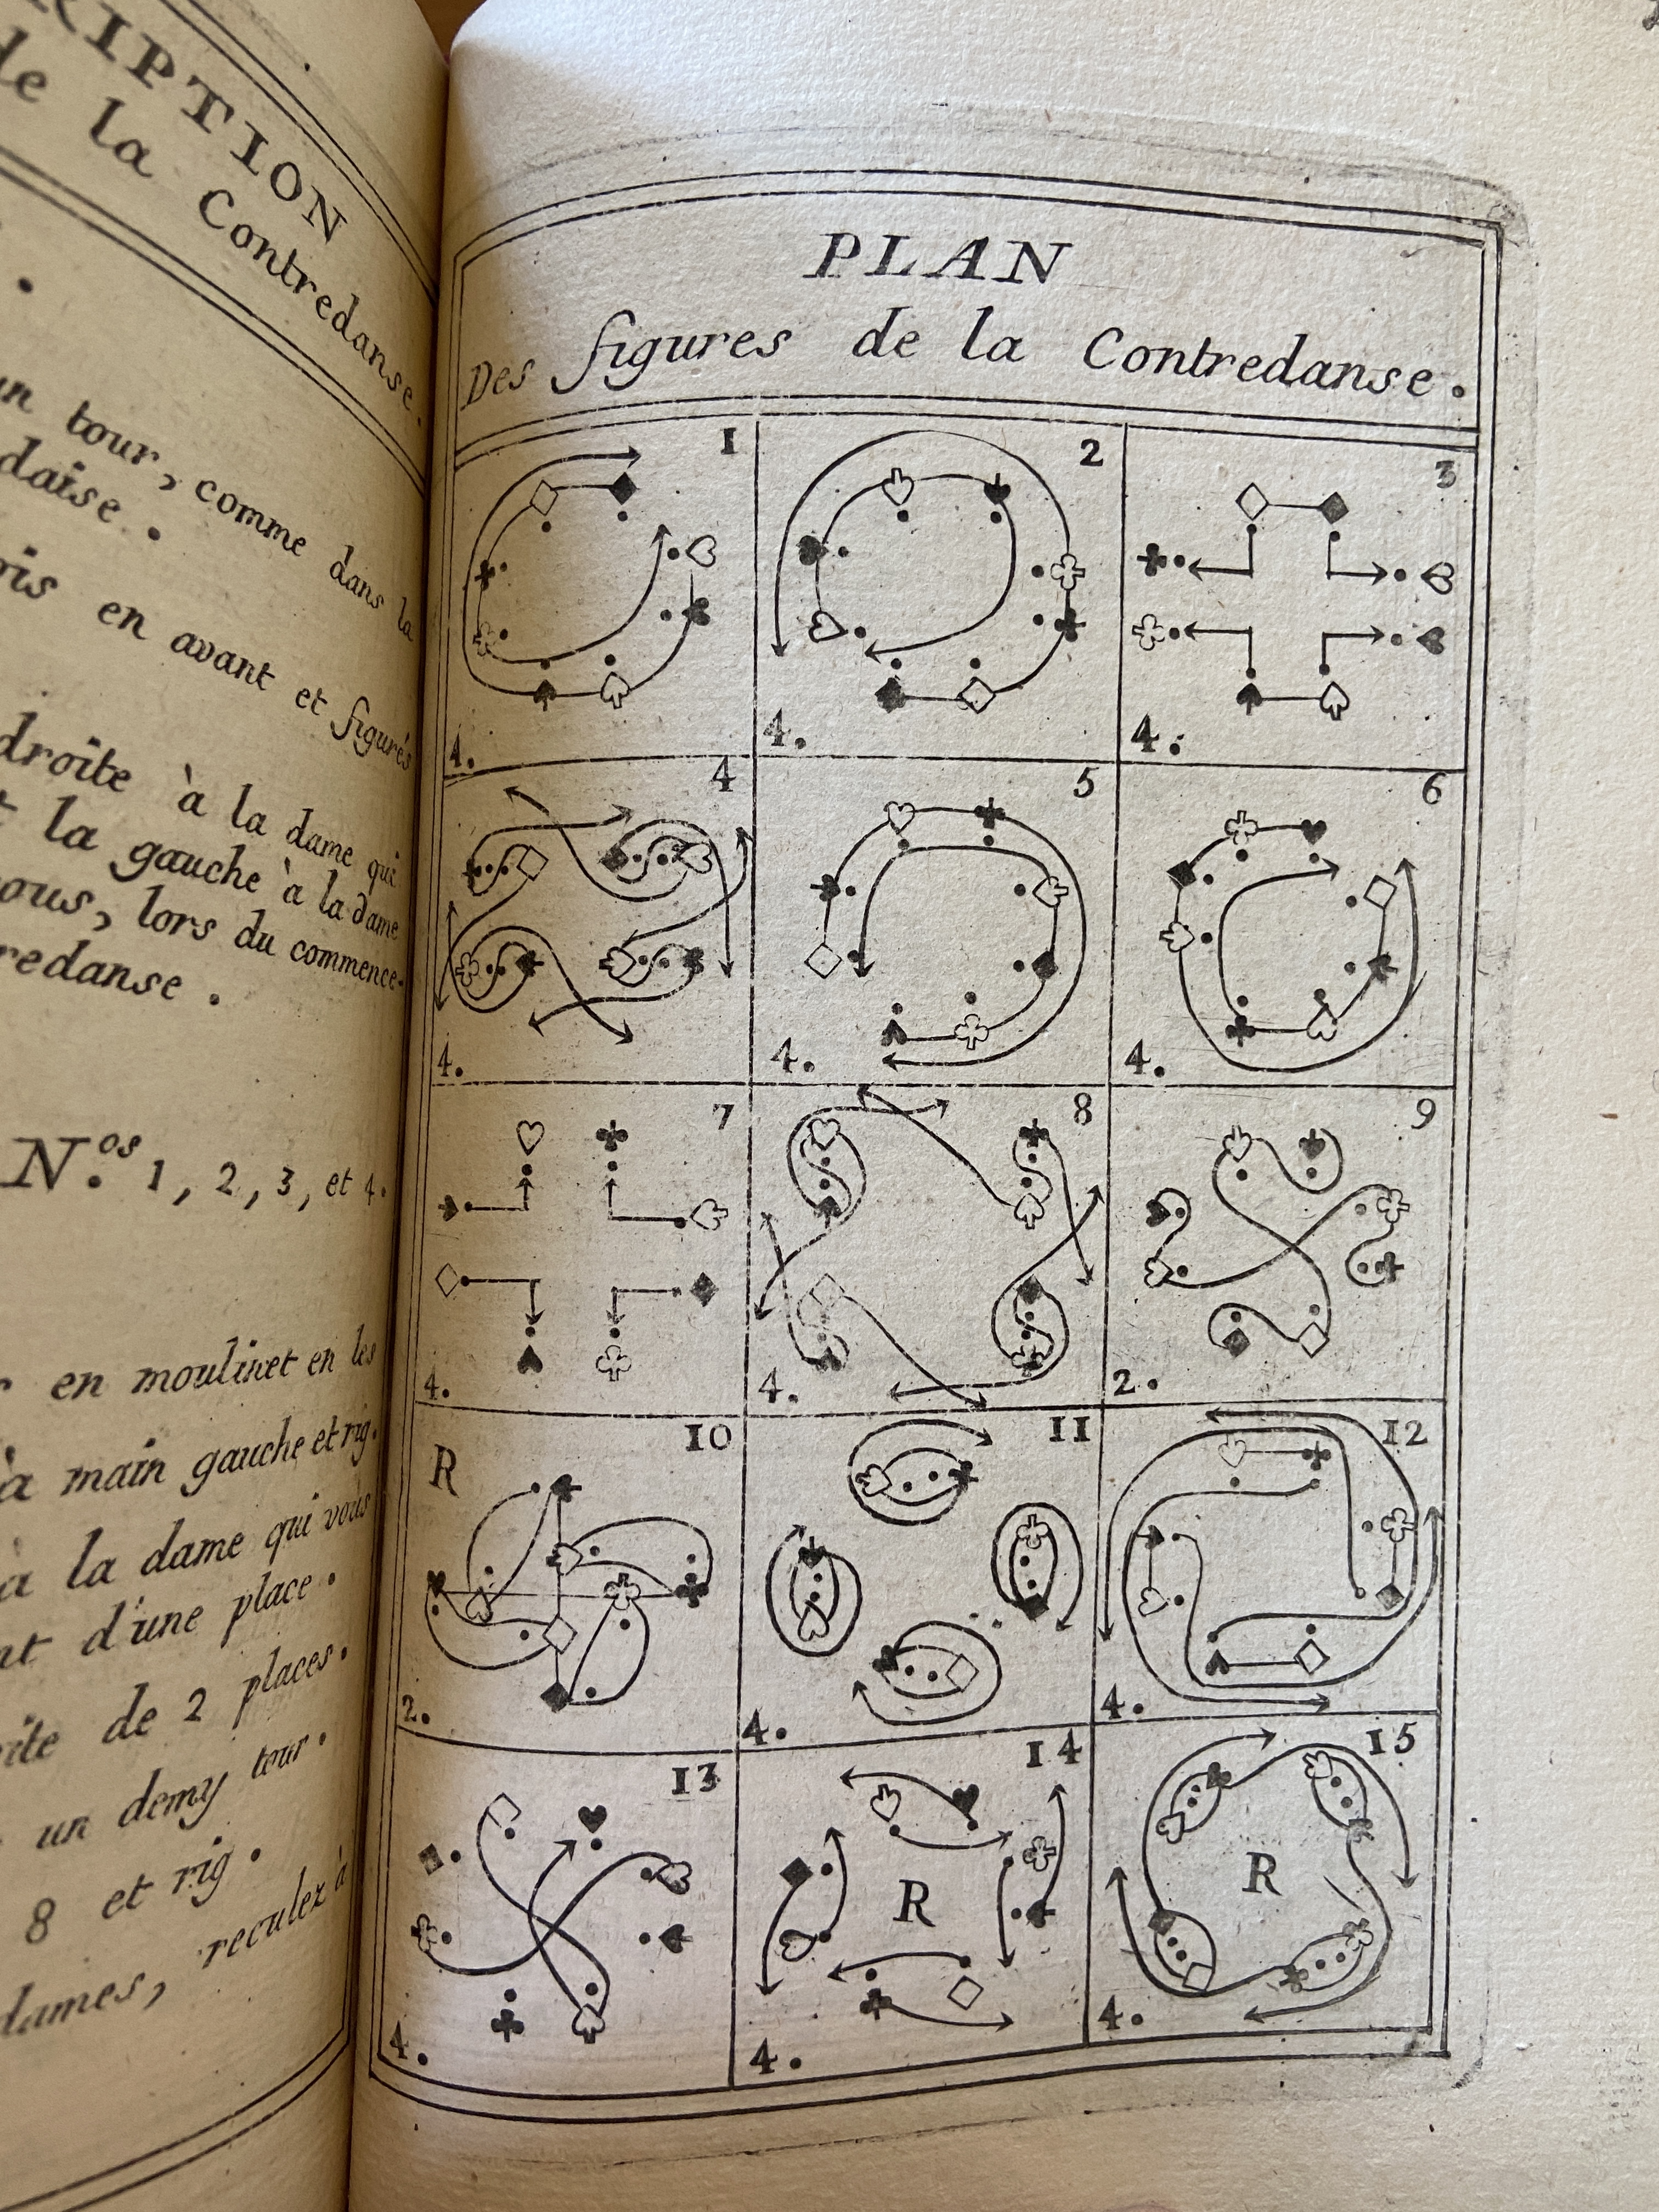 RIPTION
de la Contredanse.
un tour, comme dans la
daise.
ois en avant et figurés
droite à la dame qui
la gauche à la dame
vous, lors du commence-
redanse.
N.os 1, 2, 3, et 4.
en moulinet en les
à main gauche et rig.
à la dame qui vous
nt d'une place.
ite de 2 places.
un demy tour.
8 et rig.
dames, reculez à
PLAN
Des figures de la Contredanse.
1 2 3
4. 4. 4.
4 5 6
4. 4. 4.
7 8 9
4. 4. 2.
R 10 11 12
2. 4. 4.
13 14 15
R R
4. 4. 4.